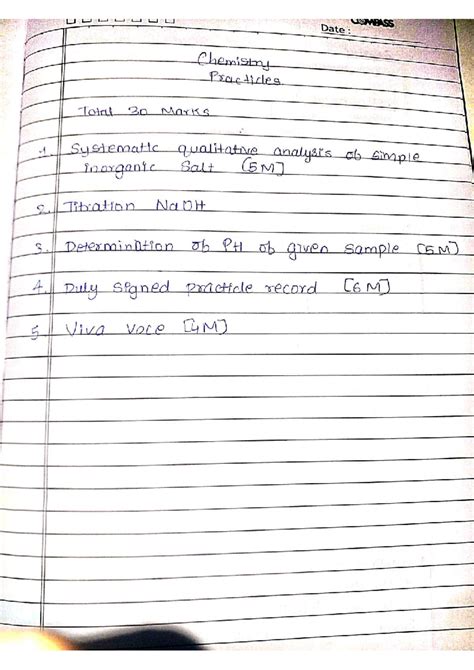 COMPASS
Date :
Chemistry
Practicles
Total 30 Marks
1. Systematic qualitative analysis ob simple
inorganic Salt [5M]
2. Titration NaOH
3. Determination ob PH ob given sample [5M]
4. Duly signed practicle record [6M]
5. Viva voce [4M]